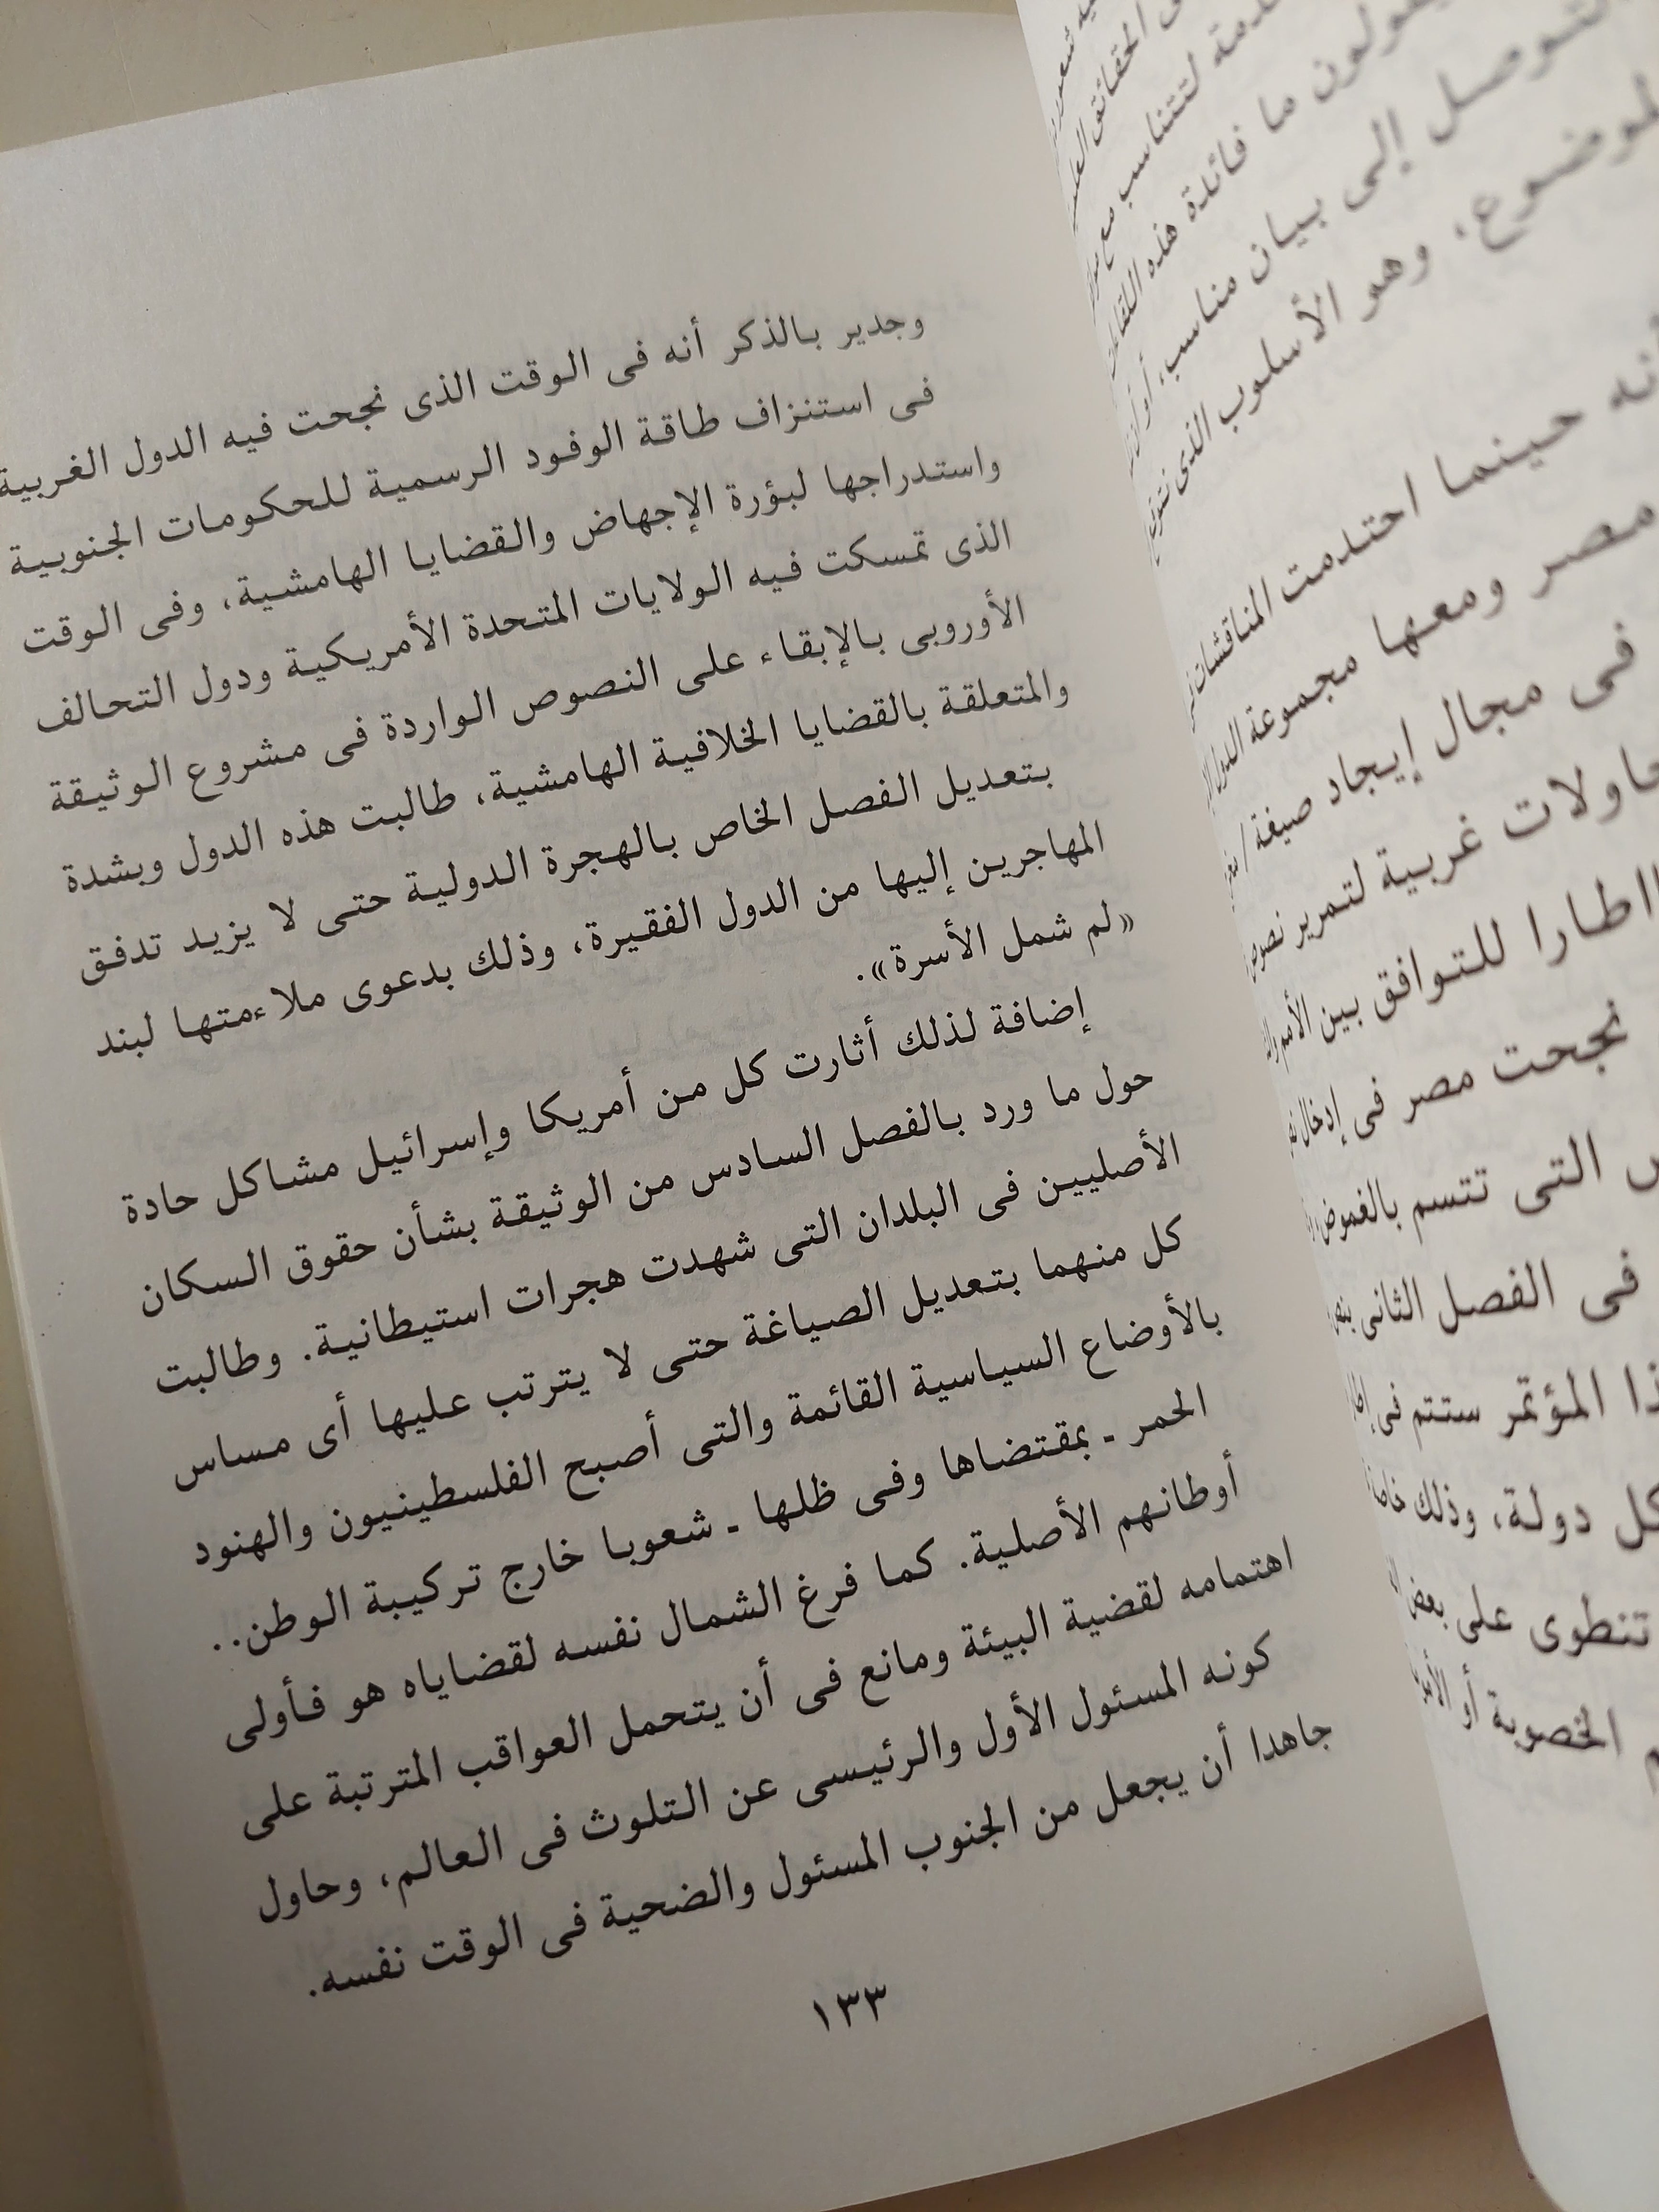 وجدير بالذكر أنه فى الوقت الذى نجحت فيه الدول الغربية
فى استنزاف طاقة الوفود الرسمية للحكومات الجنوبية
واستدراجها لبؤرة الإجهاض والقضايا الهامشية، وفى الوقت
الذى تمسكت فيه الولايات المتحدة الأمريكية ودول التحالف
الأوروبى بالإبقاء على النصوص الواردة فى مشروع الوثيقة
والمتعلقة بالقضايا الخلافية الهامشية، طالبت هذه الدول وبشدة
بتعديل الفصل الخاص بالهجرة الدولية حتى لا يزيد تدفق
المهاجرين إليها من الدول الفقيرة، وذلك بدعوى ملاءمتها لبند
«لم شمل الأسرة».
إضافة لذلك أثارت كل من أمريكا وإسرائيل مشاكل حادة
حول ما ورد بالفصل السادس من الوثيقة بشأن حقوق السكان
الأصليين فى البلدان التى شهدت هجرات استيطانية. وطالبت
كل منهما بتعديل الصياغة حتى لا يترتب عليها أى مساس
بالأوضاع السياسية القائمة والتى أصبح الفلسطينيون والهنود
الحمر - بمقتضاها وفى ظلها - شعوبا خارج تركيبة الوطن..
أوطانهم الأصلية. كما فرغ الشمال نفسه لقضاياه هو فأولى
اهتمامه لقضية البيئة ومانع فى أن يتحمل العواقب المترتبة على
كونه المسئول الأول والرئيسى عن التلوث فى العالم، وحاول
جاهدا أن يجعل من الجنوب المسئول والضحية فى الوقت نفسه.
١٣٣
الحقائق
لتتناسب مع
يقولون ما فائدة هذه اللقاءات
التوصل إلى بيان مناسب، أو أن
الموضوع، وهو الأسلوب الذى
حينما احتدمت المناقشات
مصر ومعها مجموعة الدول
فى مجال إيجاد صيغة /
غربية لتمرير
اطارا للتوافق بين الأمم
نجحت مصر فى إدخال
التى تتسم بالغموض
فى الفصل الثانى
المؤتمر ستتم فى
كل دولة، وذلك خاصة
تنطوى على بعض
الخصوبة أو